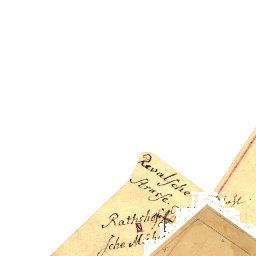 Revalsche
Strasse.
Rathshof
sche M